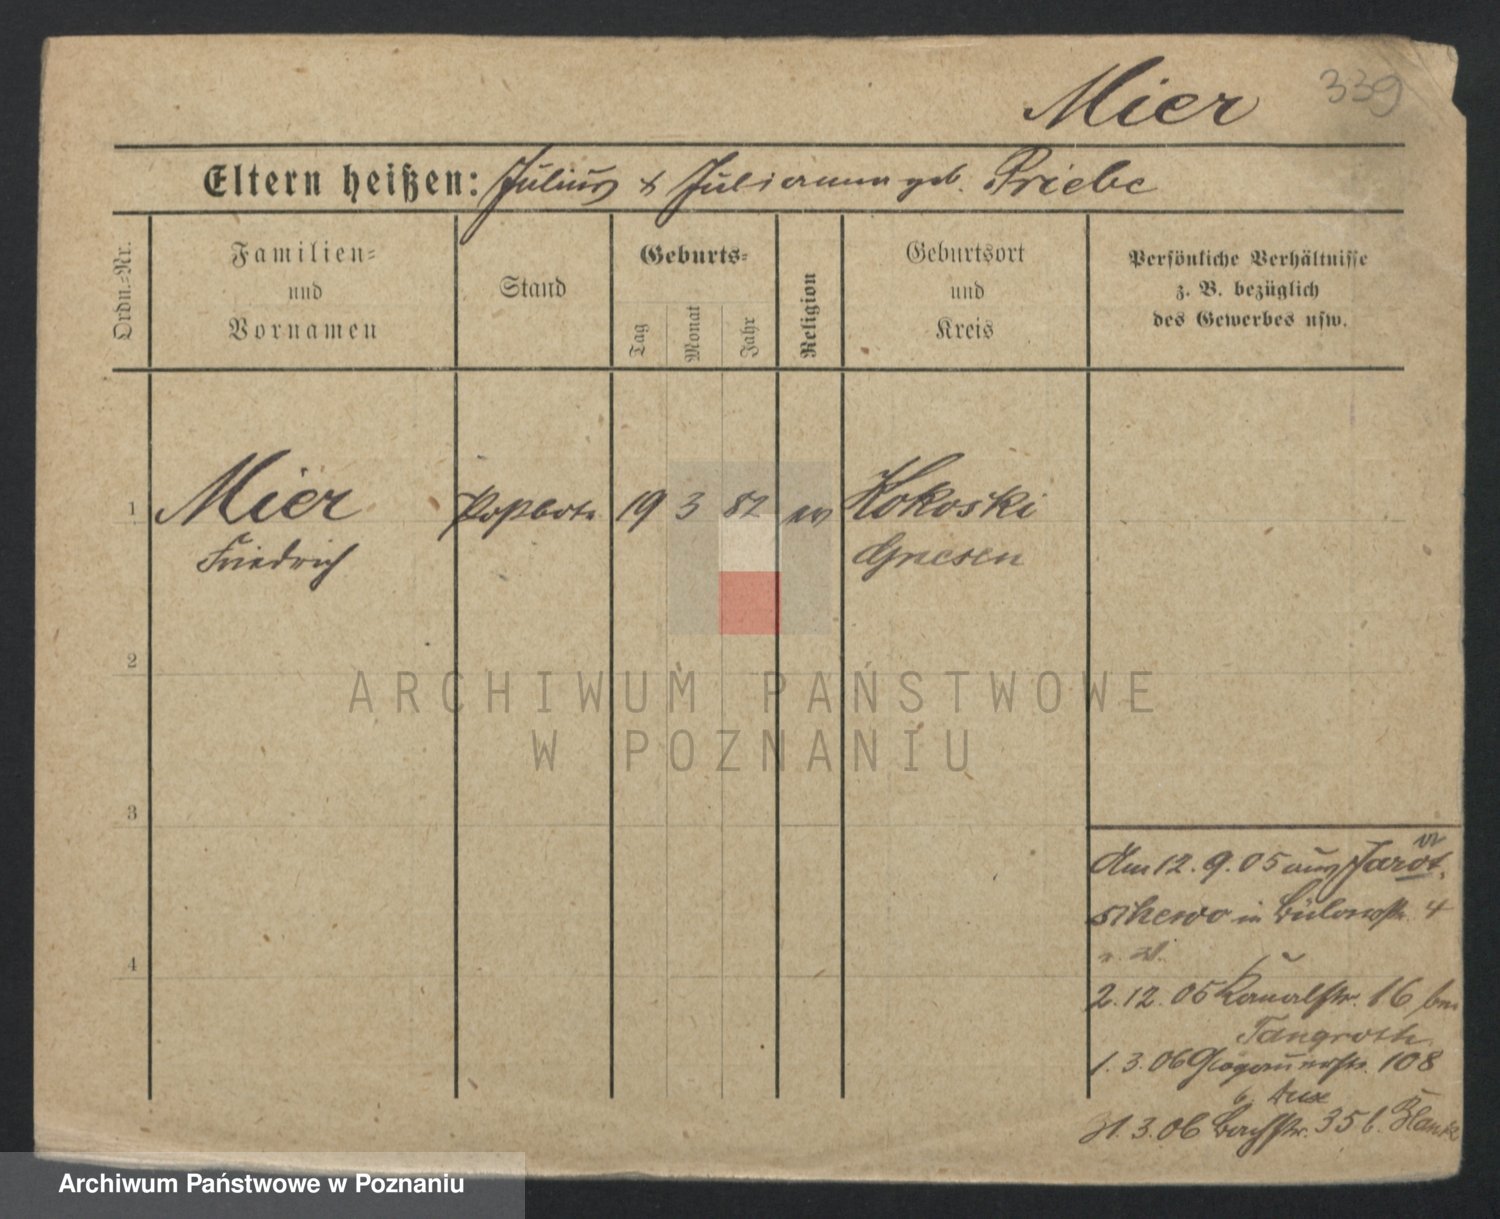 339
Mier
Eltern heißen: Julius & Julianna geb. Priebe
Ordn.-Nr.
Familien- und Vornamen
Stand
Geburts-
Tag
Monat
Jahr
Religion
Geburtsort und Kreis
Persönliche Verhältnisse
z. B. bezüglich
des Gewerbes usw.
1 Mier Postbote 19 3 82 ev Kokoski
Friedrich Gnesen
2
3
4
Am 12. 9. 05 aus Jarot-
schewo in Bülowstr. 4
2. 12. 05 Kanalstr. 16 bei
Tangroth
1. 3. 06 Glogauerstr. 108
b. Aux
31. 3. 06 Bachstr. 35 b.
ARCHIWUM PAŃSTWOWE
W POZNANIU
Archiwum Państwowe w Poznaniu